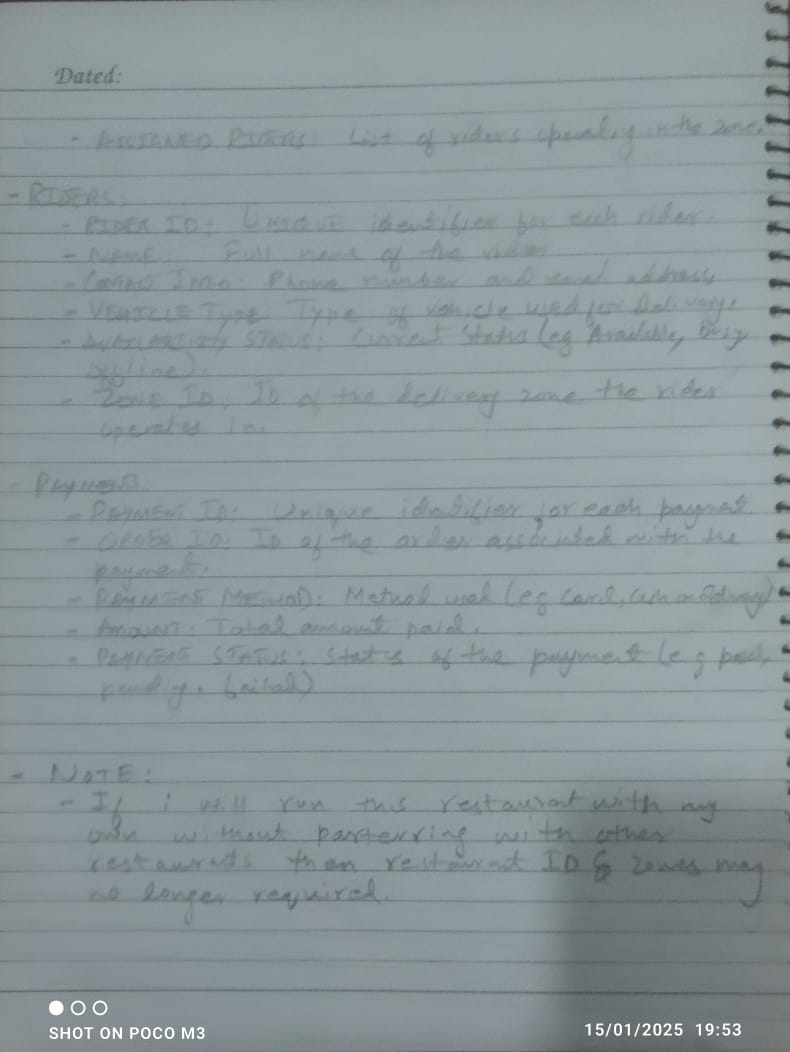 Dated:
- ASSIGNED RIDERS: List of riders operating in the zone.
- RIDERS:
- RIDER ID: UNIQUE identifier for each rider.
- NAME: Full name of the rider
- CONTACT INFO: Phone number and email address
- VEHICLE TYPE: Type of vehicle used for Delivery.
- AVAILABILITY STATUS: Current Status (eg Available, Busy
offline).
- ZONE ID: ID of the delivery zone the rider
operates in.
- PAYMENTS:
- PAYMENT ID: Unique identifier for each payment
- ORDER ID: ID of the order associated with the
payment.
- PAYMENT METHOD: Method used (eg Card, Cash on Delivery)
- AMOUNT: Total amount paid.
- PAYMENT STATUS: Status of the payment (eg paid,
pending, failed)
- NOTE:
- If i will run this restaurant with my
own without parterring with other
restaurants then restaurant ID & zones may
no longer required.
SHOT ON POCO M3
15/01/2025 19:53